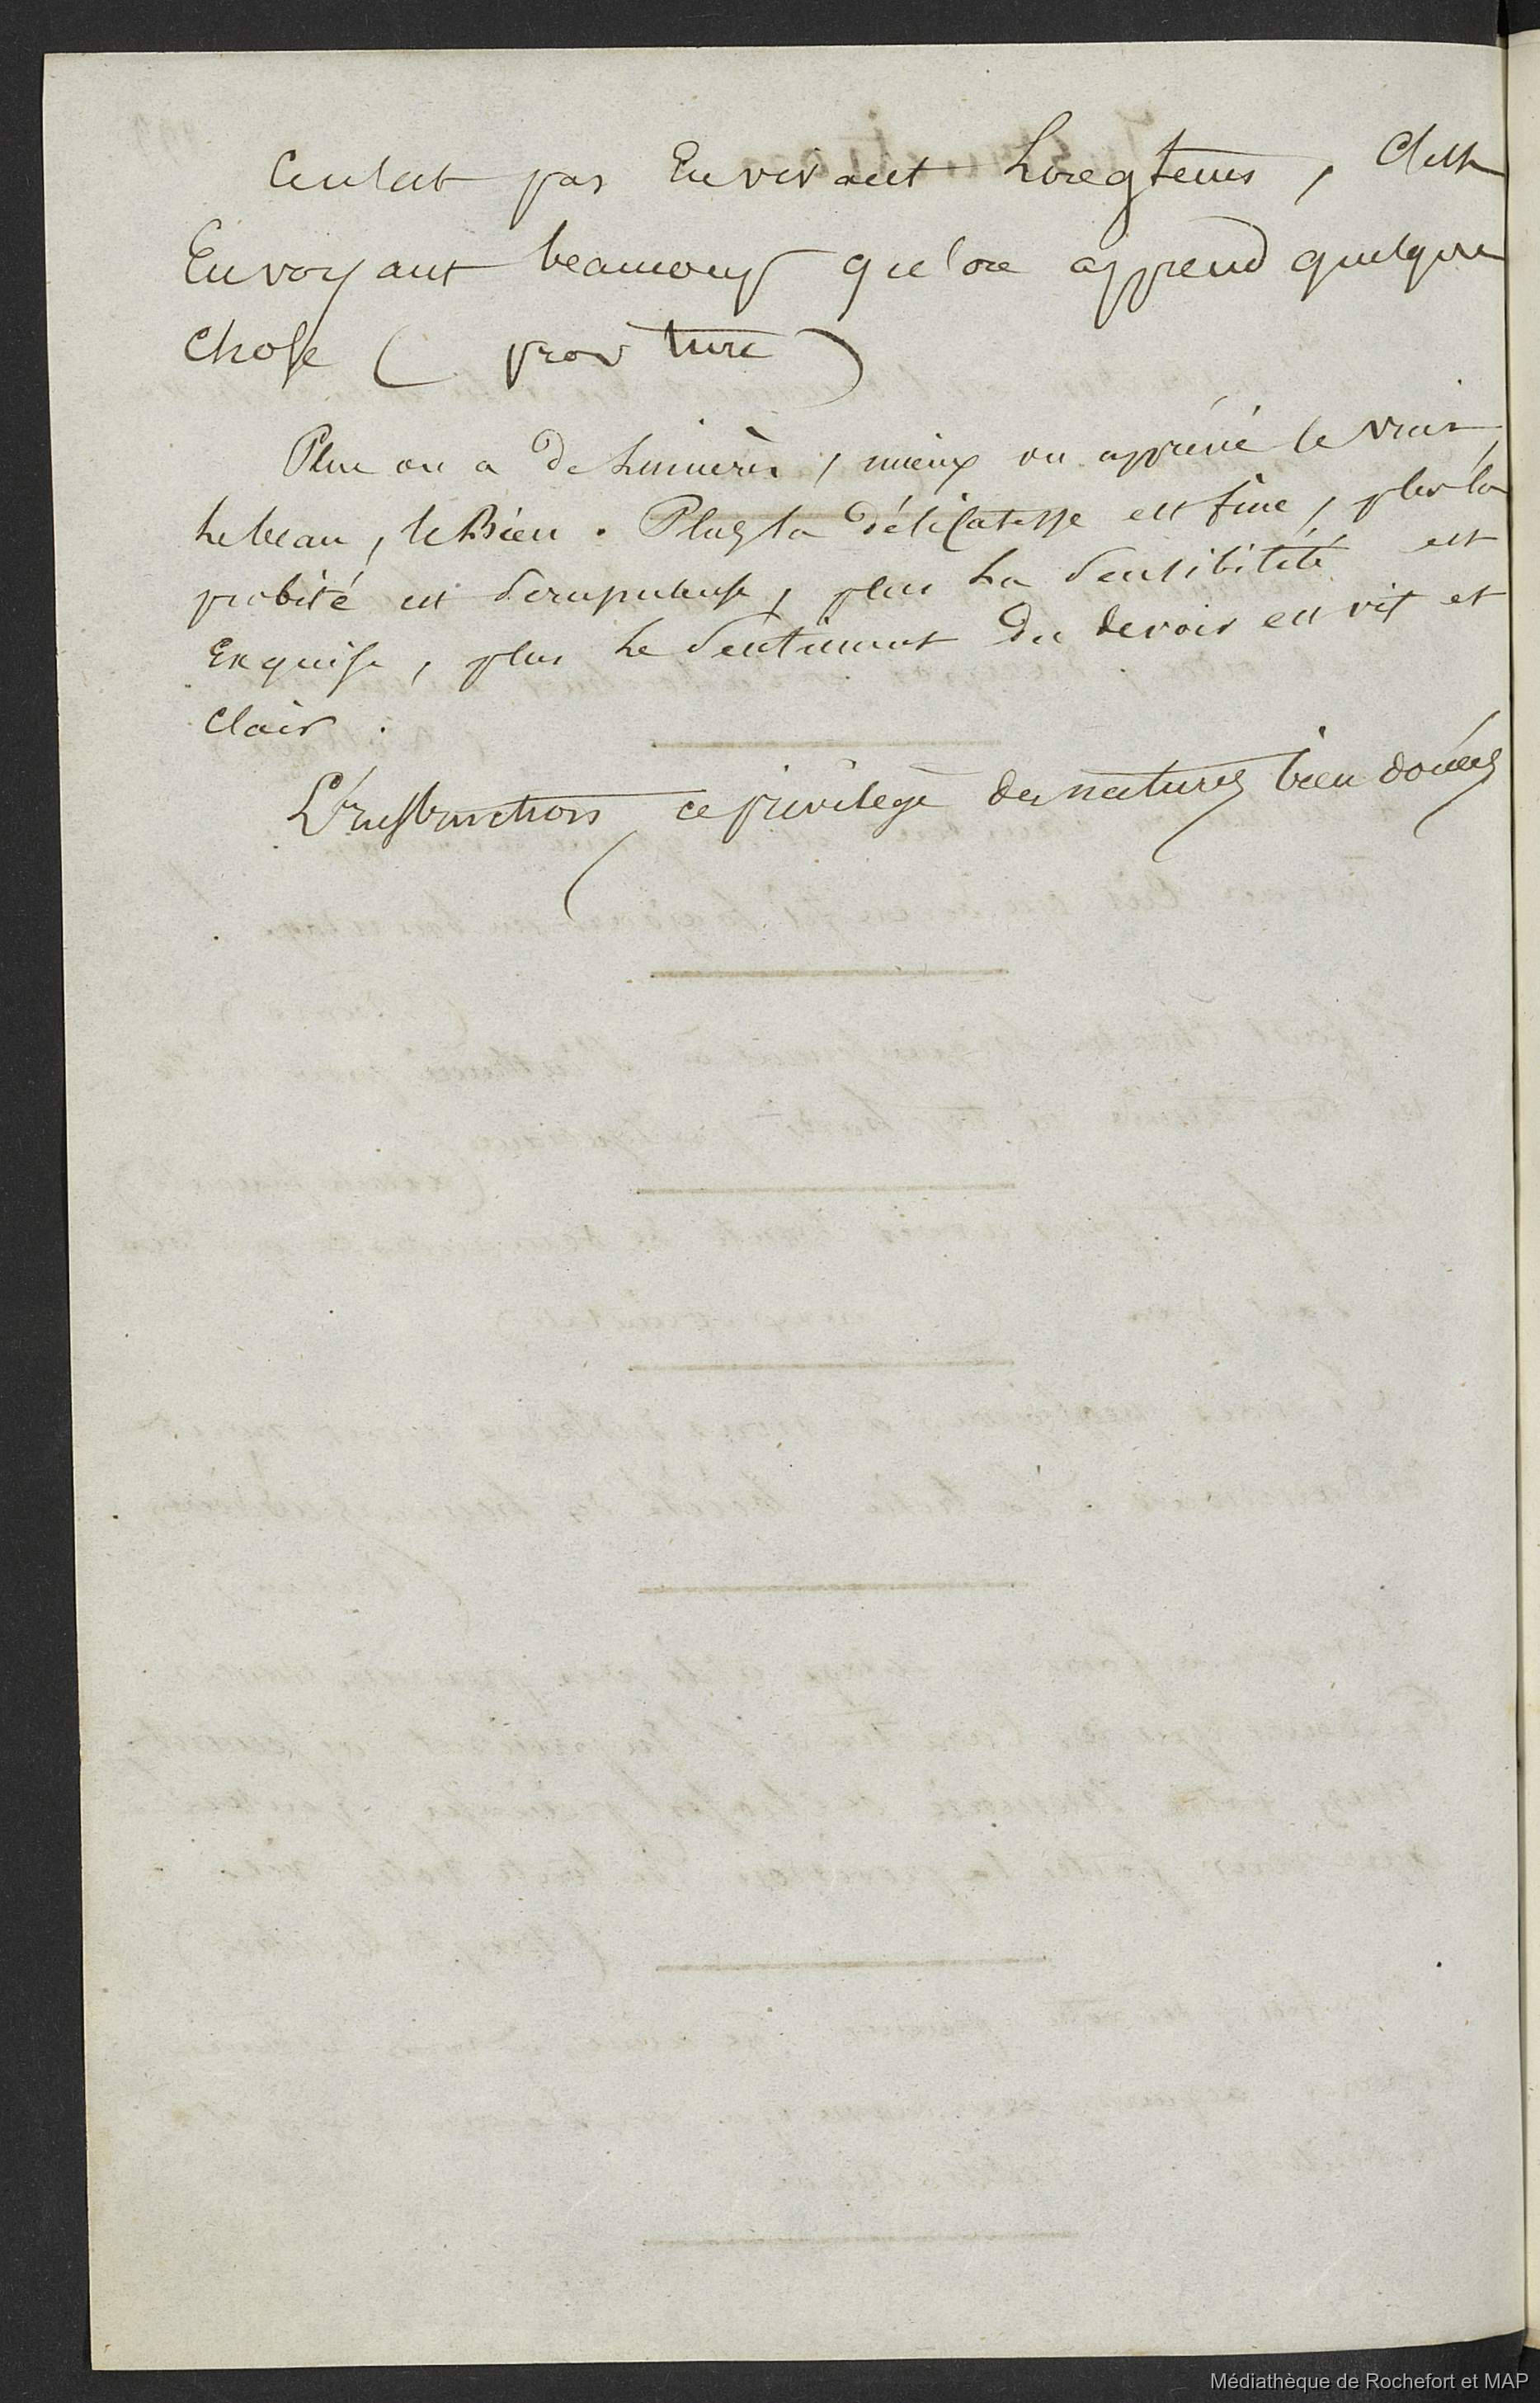 Ce n'est pas En vivant Longtems, C'est
En voyant beaucoup qu'on apprend quelque
Chose (prov turc)
Plus on a de Lumières, mieux on apprécie le vrai,
Le beau, le Bien. Plus la délicatesse est fine, plus la
probité est Scrupuleuse, plus La Sensibilité est
Exquise, plus Le Sentiment du devoir est vif et
Clair.
L'instruction, ce privilège des natures bien douées
Médiathèque de Rochefort et MAP